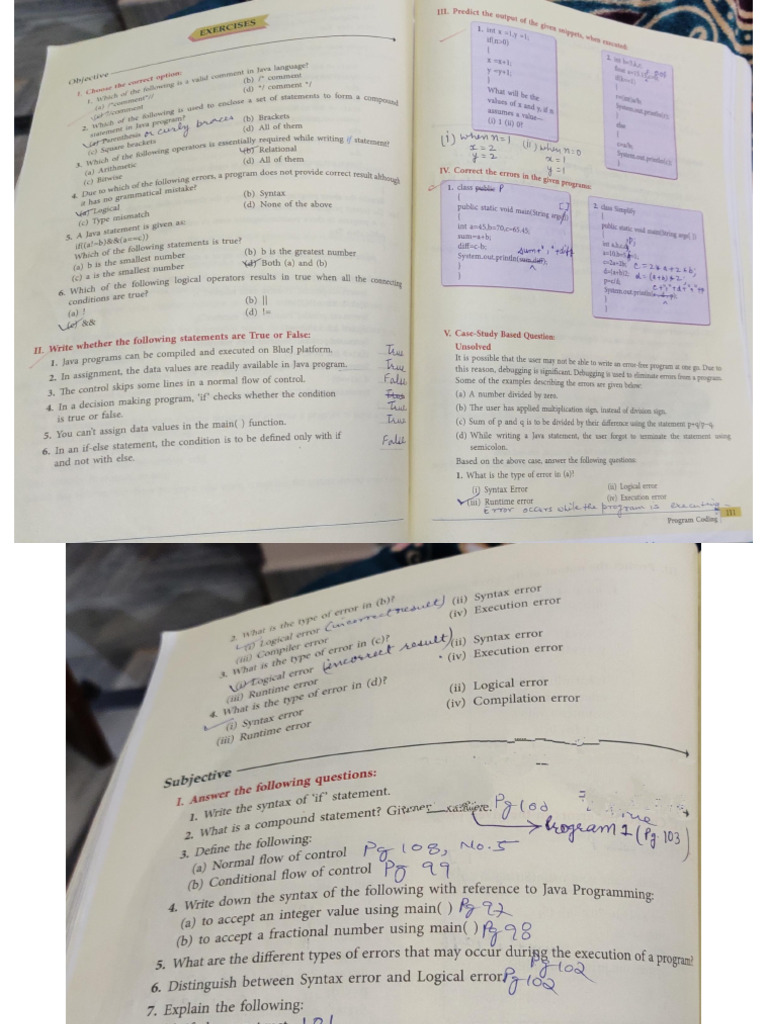 EXERCISES
Objective
I. Choose the correct option:
1. Which of the following is a valid comment in Java language?
(a) /*comment*//
(b) /* comment
(c) //comment
(d) */ comment */
2. Which of the following is used to enclose a set of statements to form a compound
statement in Java program?
(a) Parenthesis or curly braces
(b) Brackets
(c) Square brackets
(d) All of them
3. Which of the following operators is essentially required while writing if statement?
(a) Arithmetic
(b) Relational
(c) Bitwise
(d) All of them
4. Due to which of the following errors, a program does not provide correct result although
it has no grammatical mistake?
(a) Logical
(b) Syntax
(c) Type mismatch
(d) None of the above
5. A Java statement is given as:
if((a!=b)&&(a==c))
Which of the following statements is true?
(a) b is the smallest number
(b) b is the greatest number
(c) a is the smallest number
(d) Both (a) and (b)
6. Which of the following logical operators results in true when all the connecting
conditions are true?
(a) !
(b) ||
(c) &&
(d) !=
II. Write whether the following statements are True or False:
1. Java programs can be compiled and executed on BlueJ platform. True
2. In assignment, the data values are readily available in Java program. True
3. The control skips some lines in a normal flow of control. False
4. In a decision making program, 'if' checks whether the condition
is true or false. True
5. You can't assign data values in the main( ) function. True
6. In an if-else statement, the condition is to be defined only with if
and not with else. False
III. Predict the output of the given snippets, when executed:
1. int x =1,y =1;
if(n>0)
{
x =x+1;
y =y+1;
}
What will be the
values of x and y, if n
assumes a value—
(i) 1 (ii) 0?
else
System.out.println(c);
}
(i) when n=1
x = 2
y = 2
(ii) when n=0
x = 1
y = 1
IV. Correct the errors in the given programs:
1. class public P
{
public static void main(String args[ ])
{
int a=45,b=70,c=65.45;
sum=a+b;
diff=c-b;
System.out.println(sum,diff);
}
}
2. class Simplify
{
public static void main(String args[ ])
{
V. Case-Study Based Question:
Unsolved
It is possible that the user may not be able to write an error-free program at one go. Due to
this reason, debugging is significant. Debugging is used to eliminate errors from a program.
Some of the examples describing the errors are given below:
(a) A number divided by zero.
(b) The user has applied multiplication sign, instead of division sign.
(c) Sum of p and q is to be divided by their difference using the statement p+q/p-q.
(d) While writing a Java statement, the user forgot to terminate the statement using
semicolon.
Based on the above case, answer the following questions:
1. What is the type of error in (a)?
(i) Syntax Error
(ii) Logical error
(iii) Runtime error
(iv) Execution error
Error occurs while the program is executing
Program Coding 111
2. What is the type of error in (b)?
(i) Logical error (incorrect result)
(ii) Syntax error
(iii) Compiler error
(iv) Execution error
3. What is the type of error in (c)?
(i) Logical error (incorrect result)
(ii) Syntax error
(iii) Runtime error
(iv) Execution error
4. What is the type of error in (d)?
(i) Syntax error
(ii) Logical error
(iii) Runtime error
(iv) Compilation error
Subjective
I. Answer the following questions:
1. Write the syntax of 'if' statement.
2. What is a compound statement? Pg 100
Program 1 (Pg 103)
3. Define the following:
(a) Normal flow of control Pg 108, No.5
(b) Conditional flow of control Pg 99
4. Write down the syntax of the following with reference to Java Programming:
(a) to accept an integer value using main( ) Pg 97
(b) to accept a fractional number using main( ) Pg 98
5. What are the different types of errors that may occur during the execution of a program?
Pg 102
6. Distinguish between Syntax error and Logical error. Pg 102
7. Explain the following: